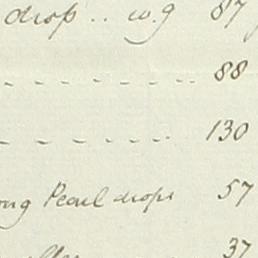 drop .. w.g 87
- - - - - - - .. 88
- - - - - - .. 130
ong Pearl drops 57
37